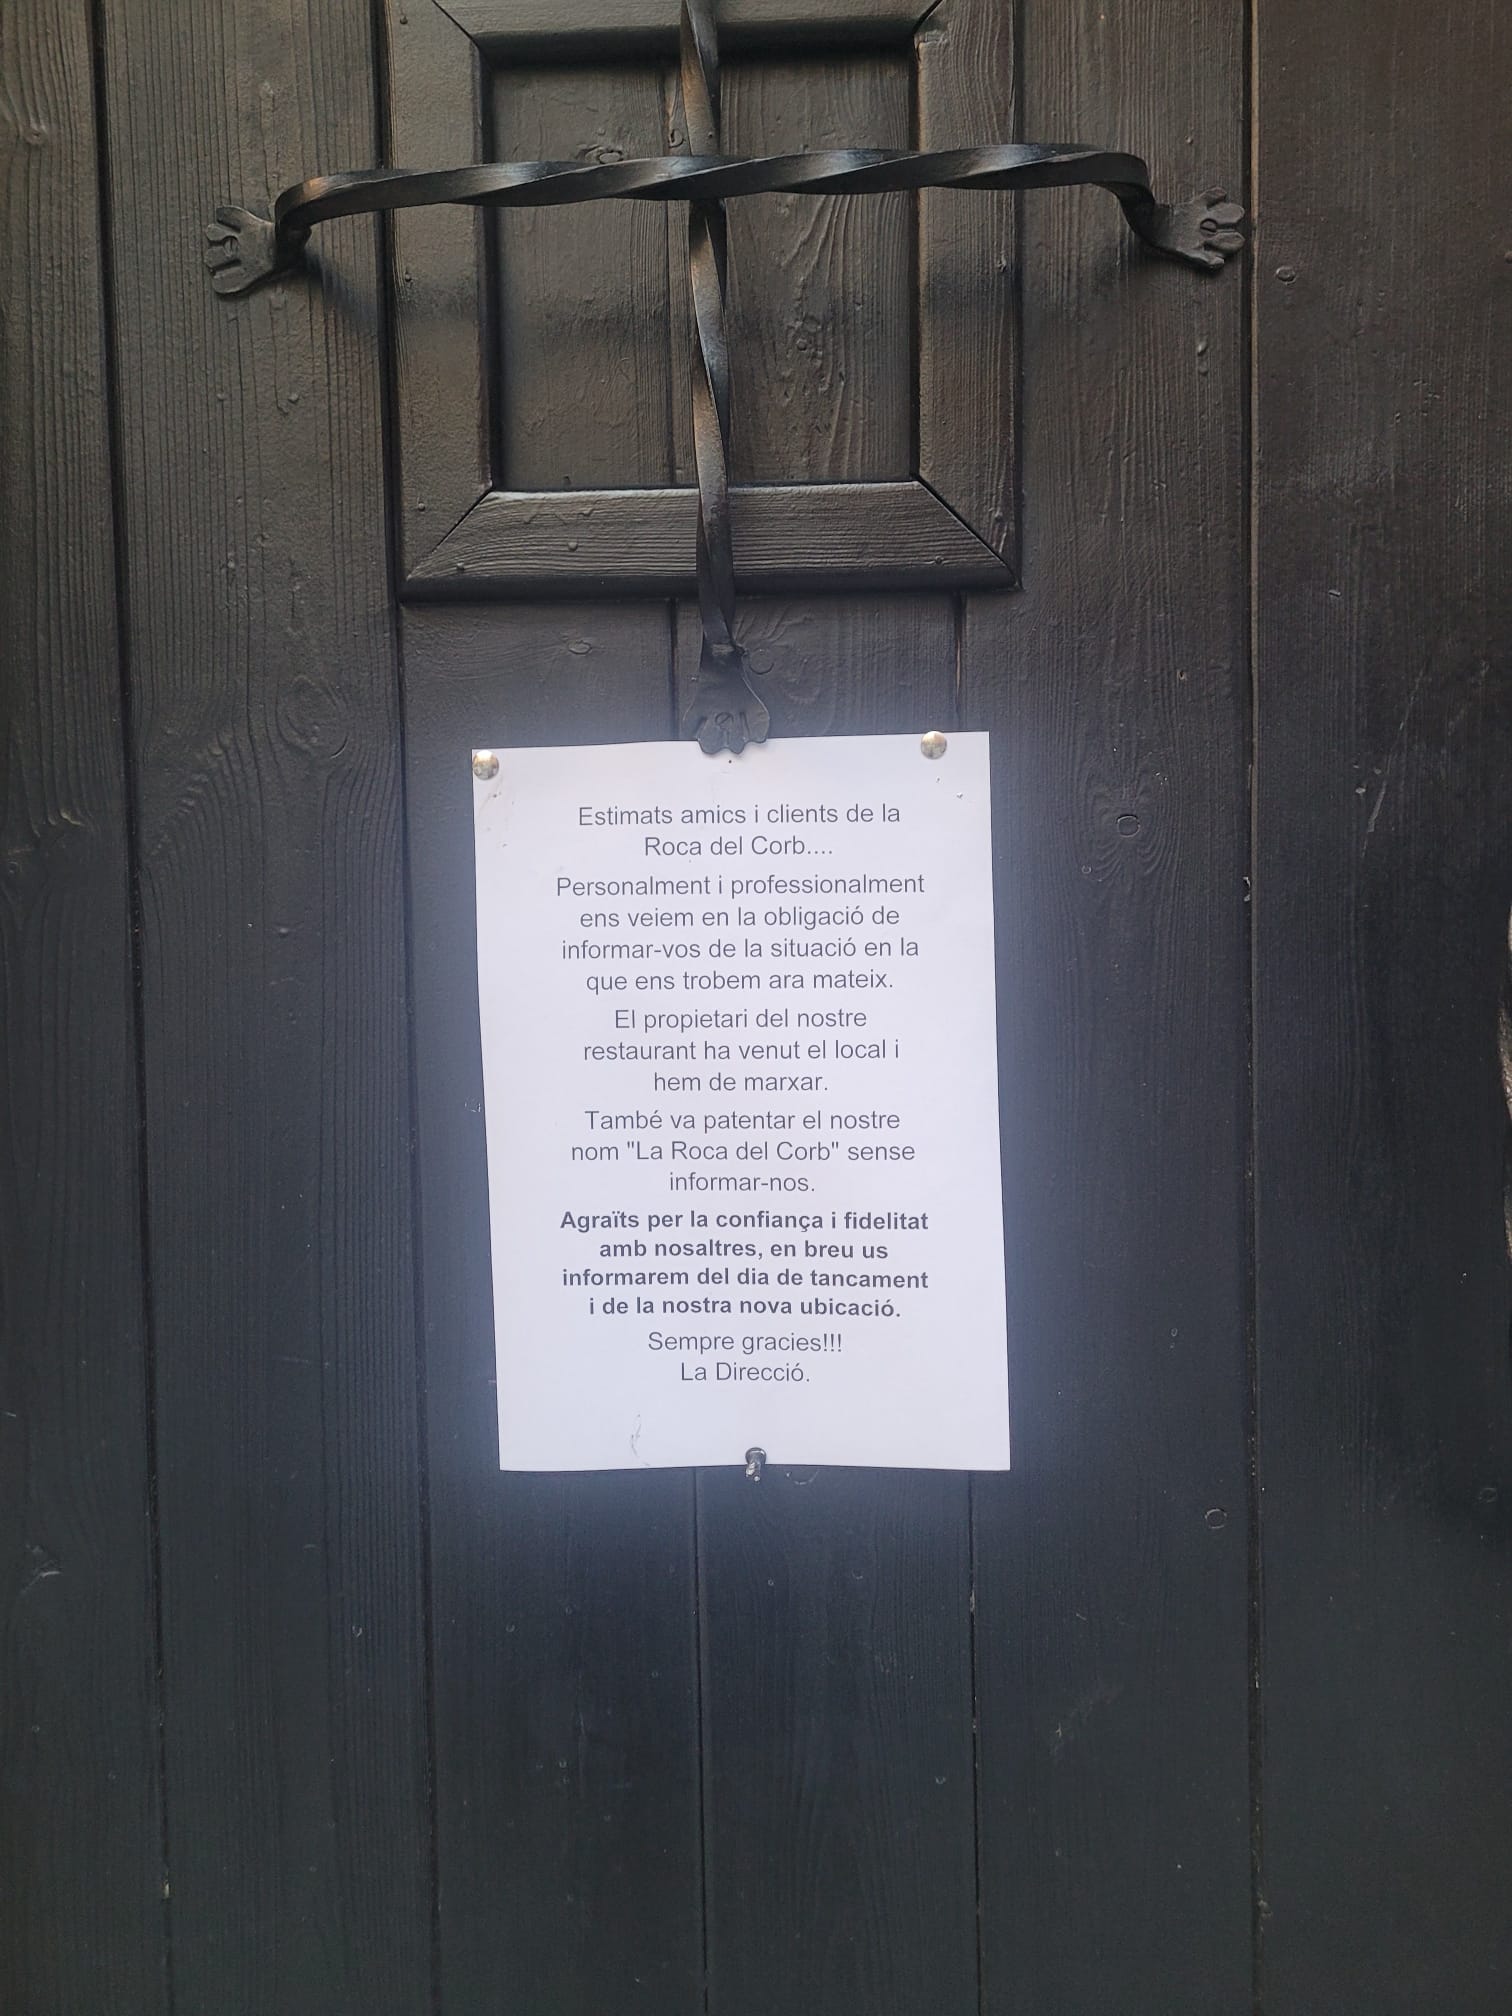 Estimats amics i clients de la
Roca del Corb....
Personalment i professionalment
ens veiem en la obligació de
informar-vos de la situació en la
que ens trobem ara mateix.
El propietari del nostre
restaurant ha venut el local i
hem de marxar.
També va patentar el nostre
nom "La Roca del Corb" sense
informar-nos.
Agraïts per la confiança i fidelitat
amb nosaltres, en breu us
informarem del dia de tancament
i de la nostra nova ubicació.
Sempre gracies!!!
La Direcció.